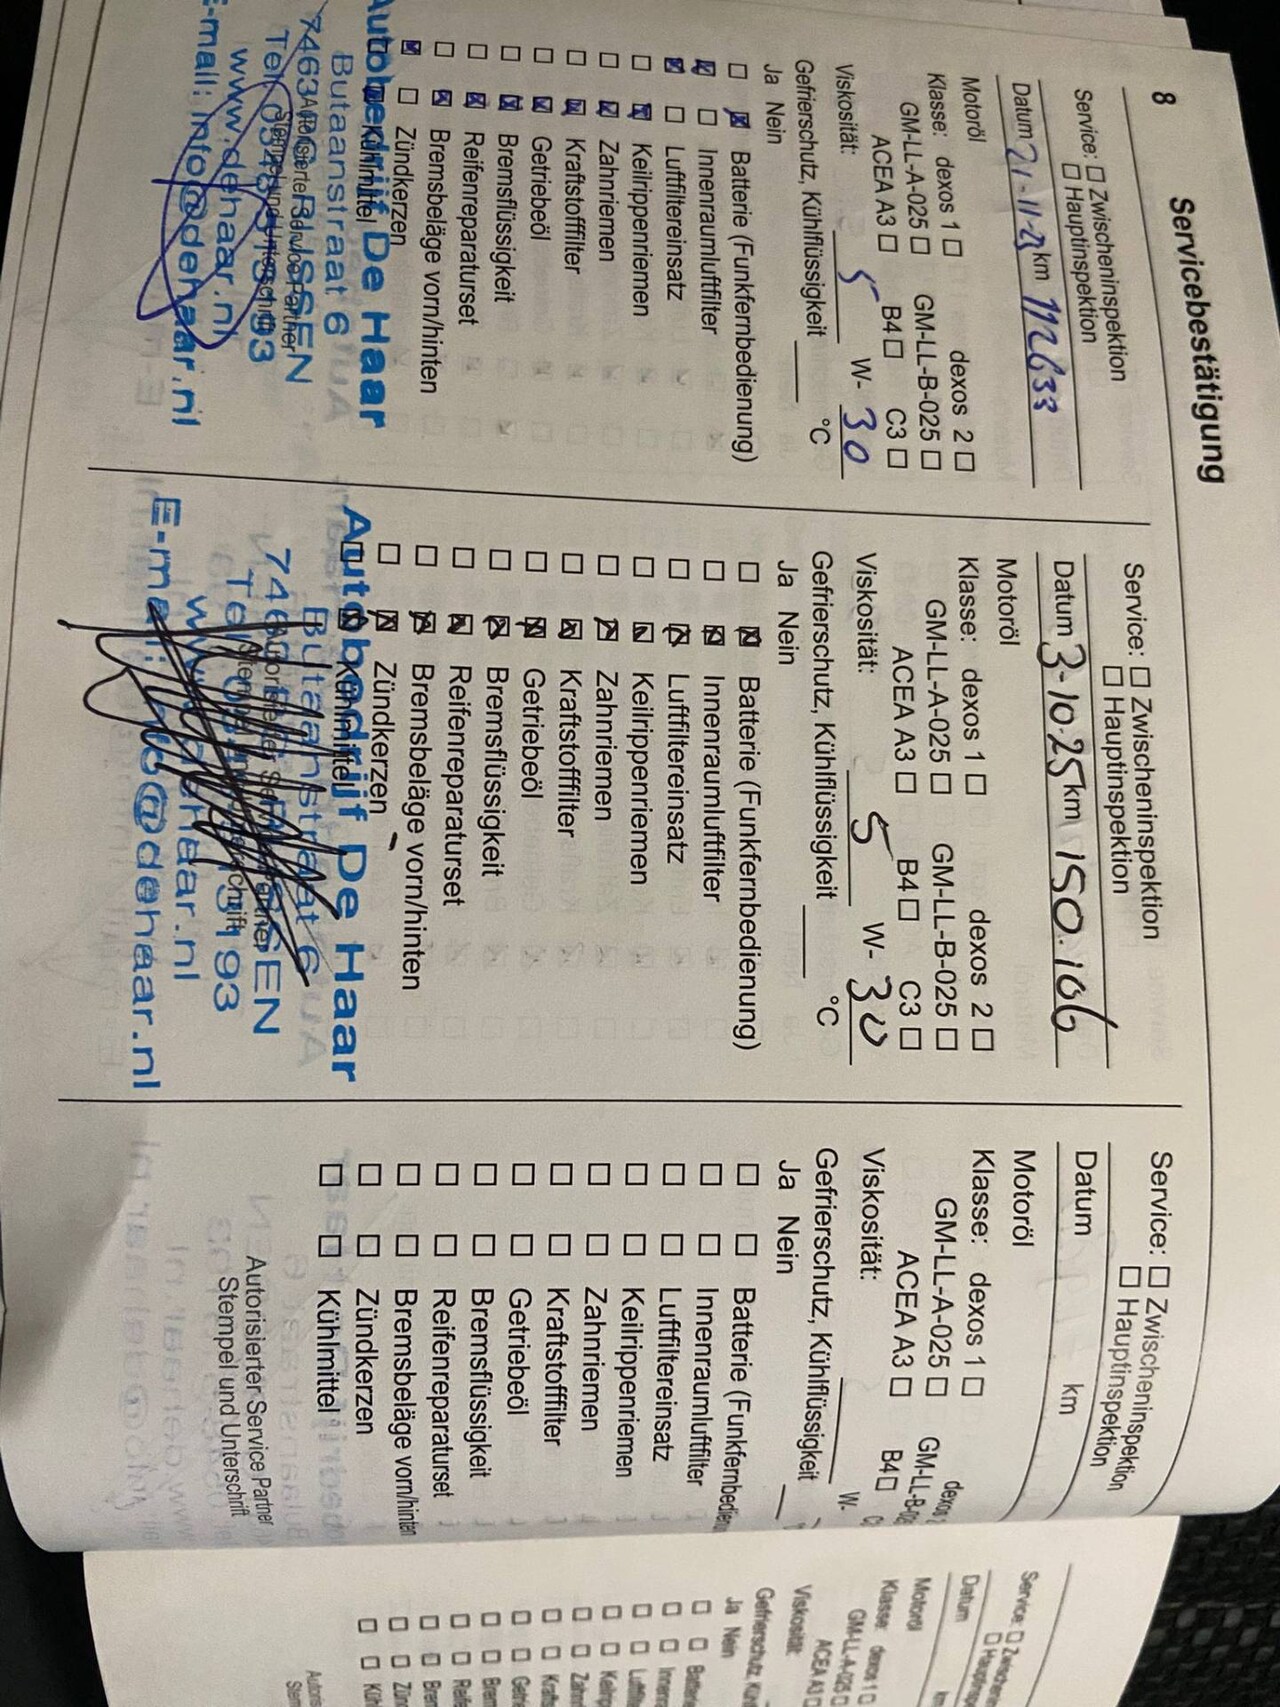 8
Servicebestätigung
Service: ☐ Zwischeninspektion
☐ Hauptinspektion
Datum 21-11-23 km 112633
Motoröl
Klasse: dexos 1 ☐ dexos 2 ☐
GM-LL-A-025 ☐ GM-LL-B-025 ☐
ACEA A3 ☐ B4 ☐ C3 ☐
Viskosität: 5 W- 30
Gefrierschutz, Kühlflüssigkeit ____ °C
Ja Nein
☐ ☒ Batterie (Funkfernbedienung)
☒ ☐ Innenraumluftfilter
☒ ☐ Luftfiltereinsatz
☐ ☒ Keilrippenriemen
☐ ☒ Zahnriemen
☐ ☒ Kraftstofffilter
☐ ☒ Getriebeöl
☐ ☒ Bremsflüssigkeit
☐ ☒ Reifenreparaturset
☐ ☒ Bremsbeläge vorn/hinten
☒ ☐ Zündkerzen
Kühlmittel
Autobedrijf De Haar
Butaanstraat 6
7463 RIJSSEN
Autorisierter Service Partner
Stempel und Unterschrift
www.dehaar.nl
E-mail: info@dehaar.nl
Service: ☐ Zwischeninspektion
☐ Hauptinspektion
Datum 3-10-25 km 150.106
Motoröl
Klasse: dexos 1 ☐ dexos 2 ☐
GM-LL-A-025 ☐ GM-LL-B-025 ☐
ACEA A3 ☐ B4 ☐ C3 ☐
Viskosität: 5 W- 30
Gefrierschutz, Kühlflüssigkeit ____ °C
Ja Nein
☐ ☒ Batterie (Funkfernbedienung)
☐ ☒ Innenraumluftfilter
☐ ☒ Luftfiltereinsatz
☐ ☒ Keilrippenriemen
☐ ☒ Zahnriemen
☐ ☒ Kraftstofffilter
☐ ☒ Getriebeöl
☐ ☒ Bremsflüssigkeit
☐ ☒ Reifenreparaturset
☐ ☒ Bremsbeläge vorn/hinten
☐ ☒ Zündkerzen
☐ ☒ Kühlmittel
Autobedrijf De Haar
Butaanstraat 6
Service: ☐ Zwischeninspektion
☐ Hauptinspektion
Datum km
Motoröl
Klasse: dexos 1 ☐ dexos 2
GM-LL-A-025 ☐ GM-LL-B-02
ACEA A3 ☐ B4 ☐ C
Viskosität: ____ W-
Gefrierschutz, Kühlflüssigkeit
Ja Nein
☐ ☐ Batterie (Funkfernbedien
☐ ☐ Innenraumluftfilter
☐ ☐ Luftfiltereinsatz
☐ ☐ Keilrippenriemen
☐ ☐ Zahnriemen
☐ ☐ Kraftstofffilter
☐ ☐ Getriebeöl
☐ ☐ Bremsflüssigkeit
☐ ☐ Reifenreparaturset
☐ ☐ Bremsbeläge vorn/hinten
☐ ☐ Zündkerzen
☐ ☐ Kühlmittel
Autorisierter Service Partner
Stempel und Unterschrift
Service: ☐
Datum
Motoröl
Klasse: dexos 1 ☐
GM-LL-A-025 ☐
ACEA A3
Viskosität:
Gefrierschutz,
Ja Nein